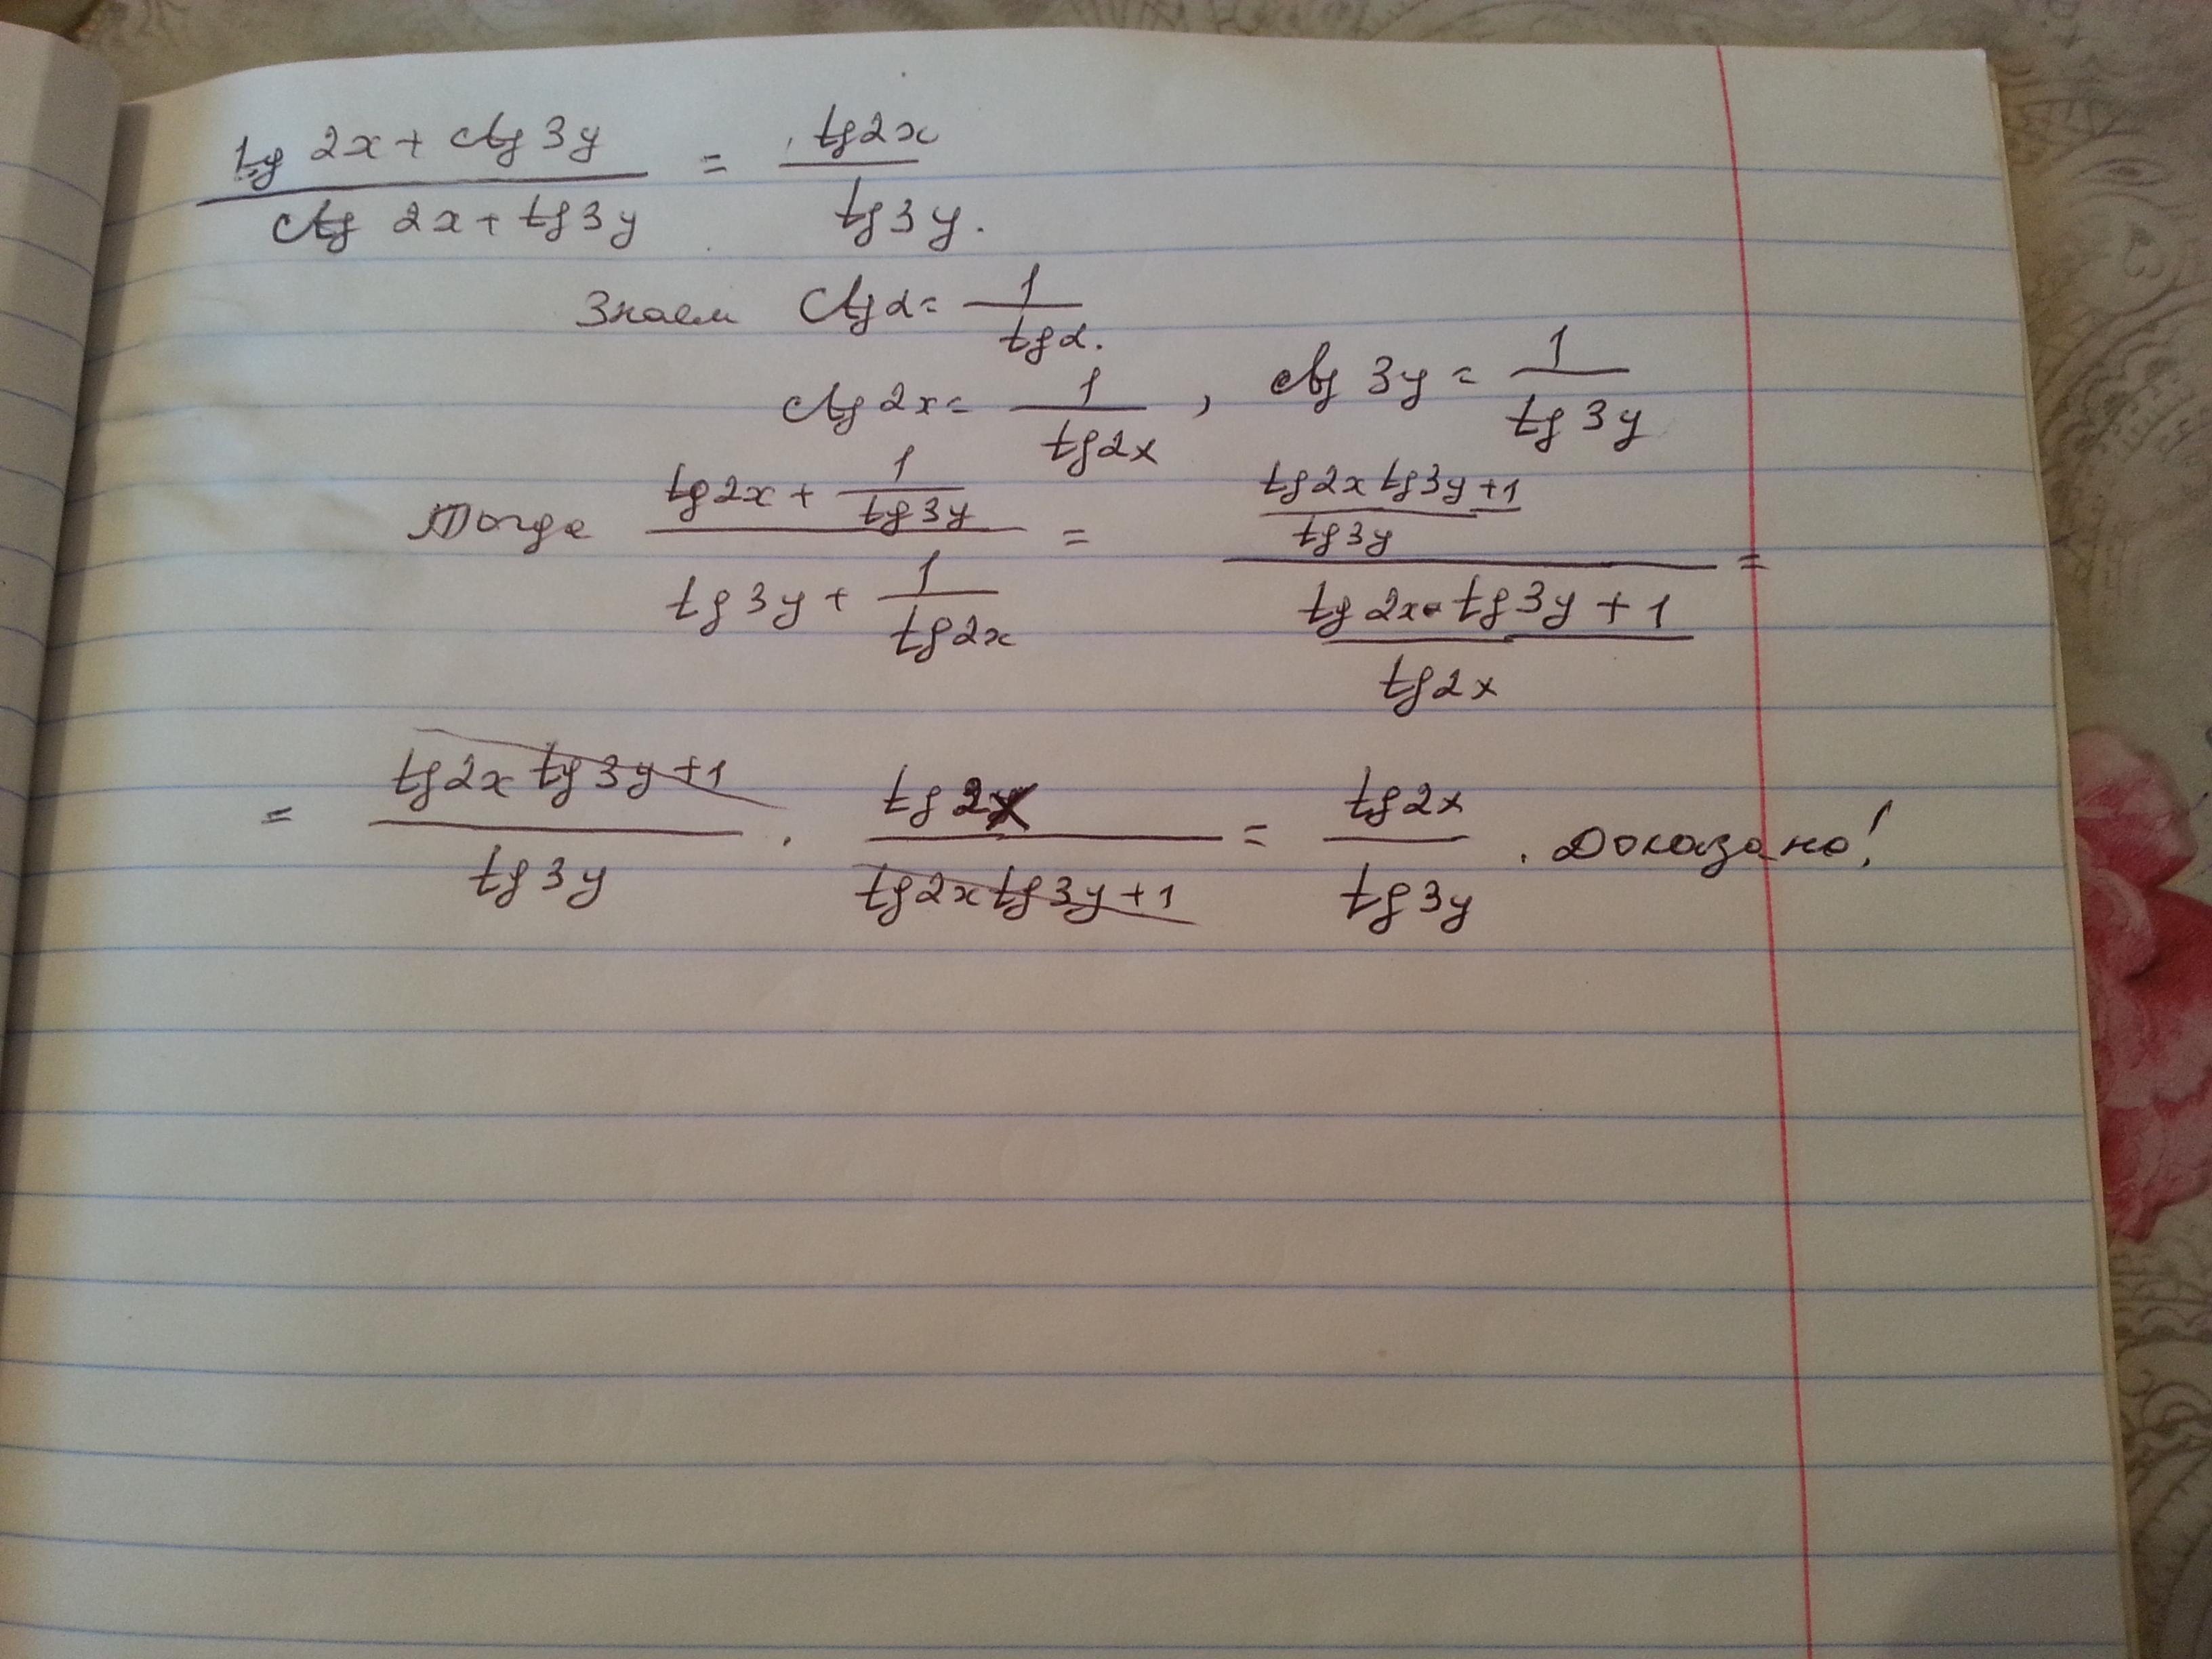 tg 2x + ctg 3y / ctg 2x + tg 3y = tg2x / tg3y.
Знаем ctg α = 1 / tg α.
ctg 2x = 1 / tg2x , ctg 3y = 1 / tg 3y
Тогда (tg2x + 1 / tg3y) / (tg 3y + 1 / tg2x) = (tg2x tg3y + 1 / tg3y) / (tg 2x · tg 3y + 1 / tg2x) =
= tg2x tg 3y + 1 / tg 3y · tg 2x / tg2x tg 3y + 1 = tg2x / tg 3y . Доказано!